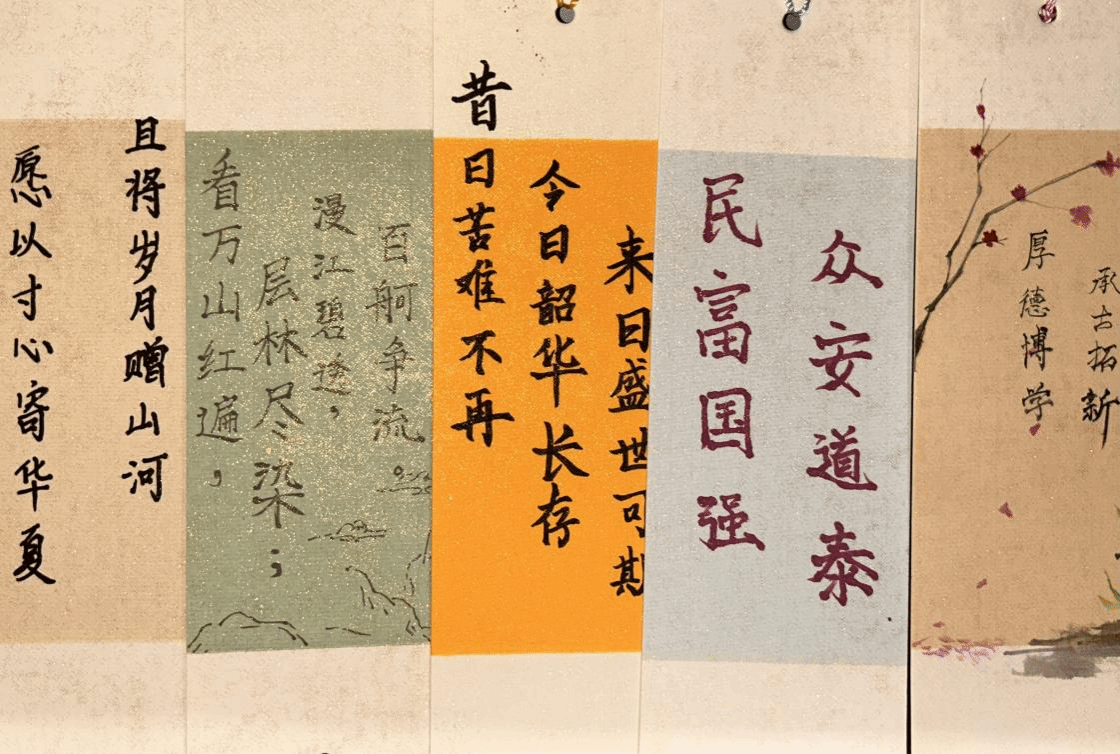 愿以寸心寄华夏
且将岁月赠山河
看万山红遍，
层林尽染；
漫江碧透，
百舸争流
昔日苦难不再
今日韶华长存
来日盛世可期
民富国强
众安道泰
厚德博学
承古拓新